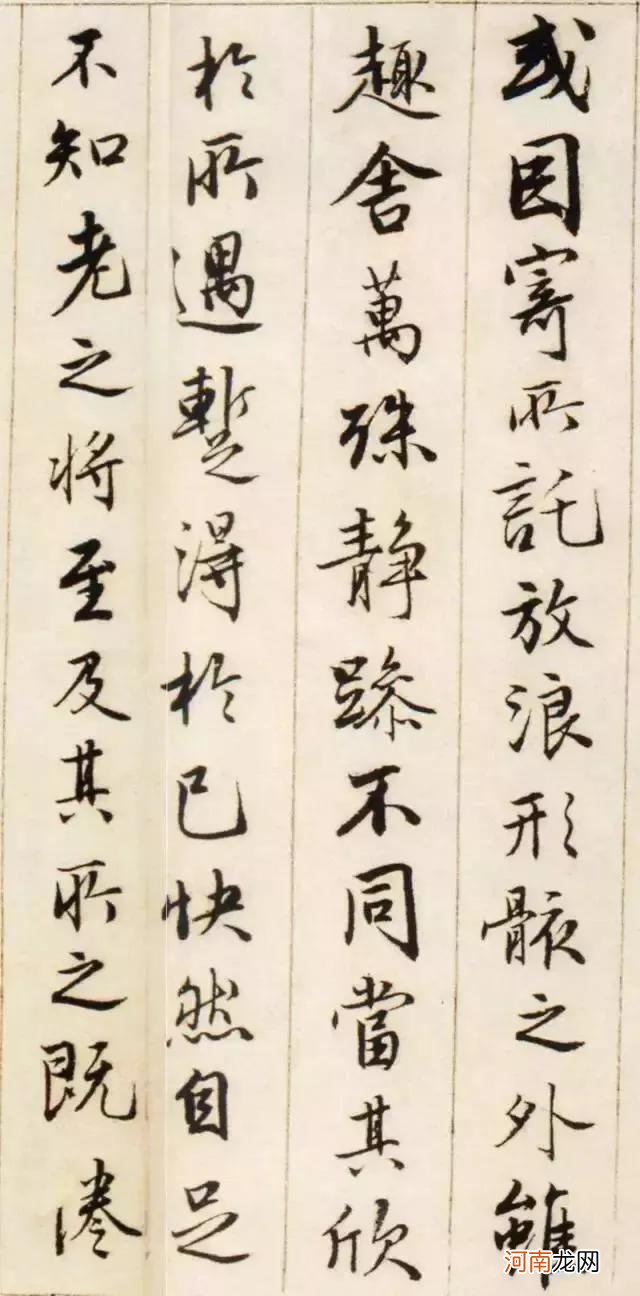 或因寄所託放浪形骸之外雖
趣舍萬殊静躁不同當其欣
於所遇蹔得於己快然自足
不知老之将至及其所之既惓
河南龙网